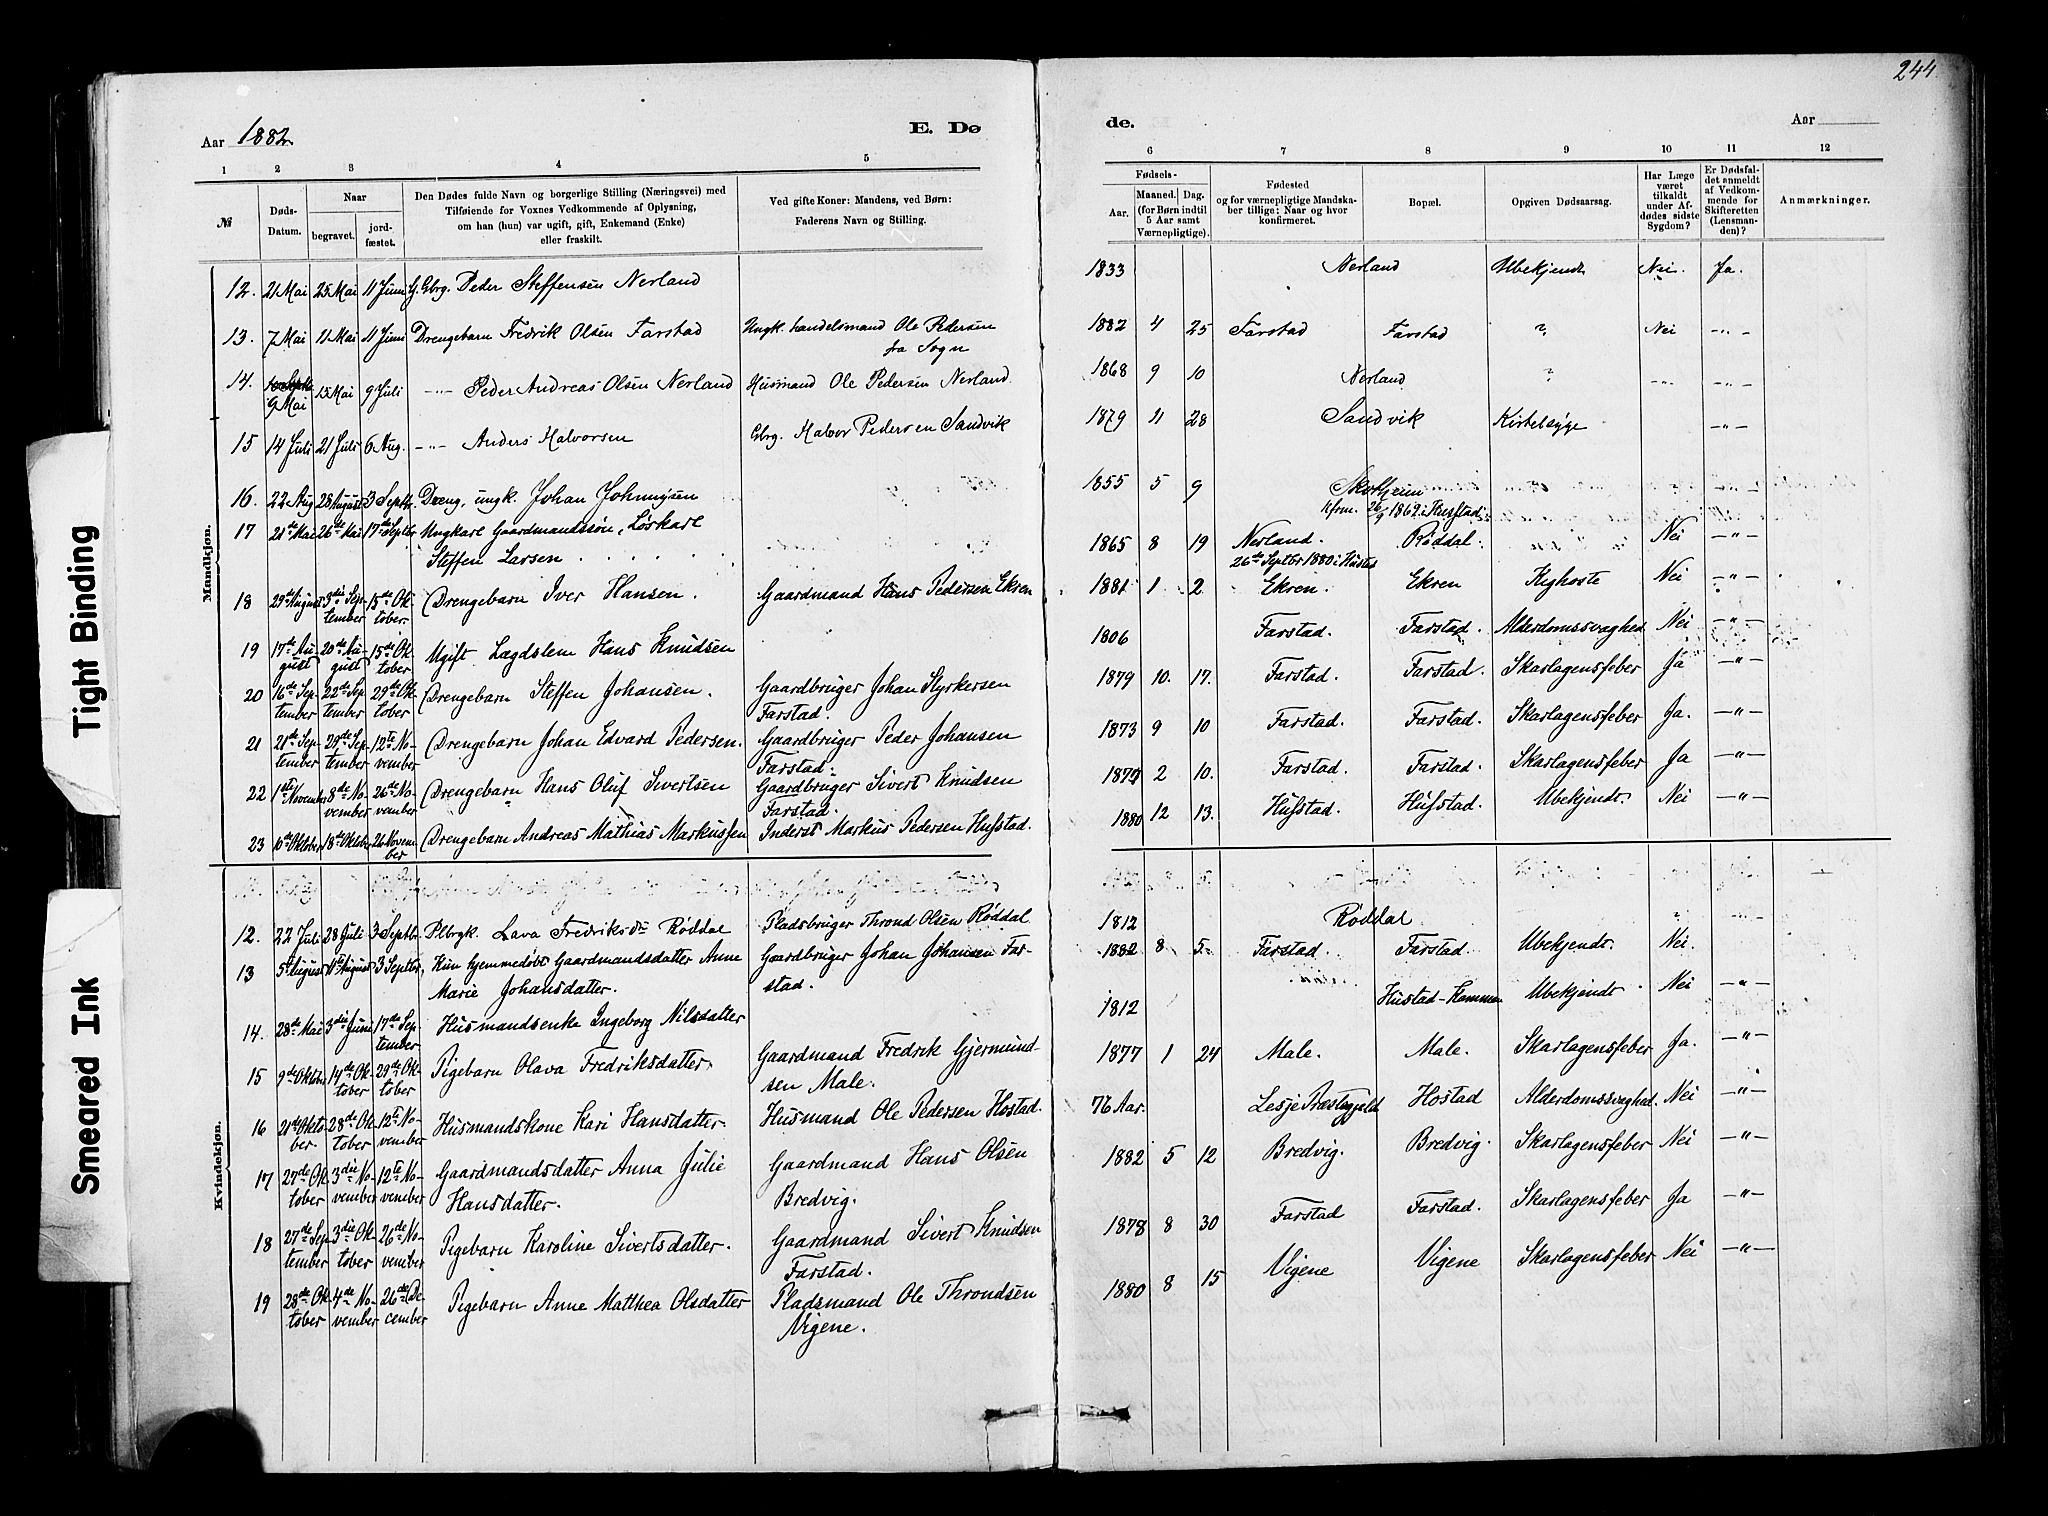 244
Aar 1882
E. Dø
de.
Aar
1 2 3 4 5 6 7 8 9 10 11 12
№
Døds-
Datum.
Naar
begravet.
jord-
fæstet.
Den Dødes fulde Navn og borgerlige Stilling (Næringsvei) med
Tilføiende for Voxnes Vedkommende af Oplysning,
om han (hun) var ugift, gift, Enkemand (Enke)
eller fraskilt.
Ved gifte Koner: Mandens, ved Børn:
Faderens Navn og Stilling.
Fødsels-
Aar.
Maaned. Dag.
(for Børn indtil
5 Aar samt
Værnepligtige).
Fødested
og for værnepligtige Mandska-
ber tillige: Naar og hvor
konfirmeret.
Bopæl.
Opgiven Dødsaarsag.
Har Læge
været
tilkaldt
under Af-
dødes sidste
Sygdom?
Er Dødsfal-
det anmeldt
af Vedkom-
mende for
Skifteretten
(Lensman-
den)?
Anmærkninger.
Mandkjøn.
12. 21 Mai 25 Mai 11 Juni G. Gbrg. Peder Steffensen Nerland 1833 Nerland Ubekjendt Nei. Ja.
13. 7 Mai 11 Mai 11 Juni Drengebarn Fredrik Olsen Farstad Ungk. handelsmand Ole Pedersen 1882 4 25 Farstad Farstad ? Nei -"-
fra Sogn
14. 9 Mai 15 Mai 9 Juli -"- Peder Andreas Olsen Nerland Husmand Ole Pedersen Nerland. 1868 9 10 Nerland ? -"- -"-
15 14 Juli 21 Juli 6 Aug. -"- Anders Halvorsen Gbrg. Halvor Pedersen Sandvik 1879 11 28 Sandvik Kirtelsyge -"-
16. 22 Aug 28 August 3 Septbr. Dreng, ungk. Johan Johnnysen 1855 5 9 Skotheim
Kfrm. 26/9 1869 i Hustad
17 21de Mai 26de Mai 17de Septbr Ungkarl Gaardmandssøn, Løskarl 1865 8 19 Nerland. Røddal. Nei -"-
Steffen Larsen 26de Septbr 1880 i Hustad
18 29de August 3die Sep- 15de Ok- Drengebarn Iver Hansen. Gaardmand Hans Pedersen Ekren 1881 1 2 Ekren. Ekren Kighoste Nei -"-
tember tober.
19 17de Au- 20de Au- 15de Ok- Ugift Lægdslem Hans Knudsen 1806 Farstad. Farstad. Alderdomssvaghed Nei -"-
gust gust tober
20 16de Sep- 22de Sep- 29de Ok- Drengebarn Steffen Johansen. Gaardbruger Johan Styrkersen 1879 10. 17. Farstad. Farstad. Skarlagensfeber Ja -"-
tember tember tober Farstad.
21 21de Sep- 29de Sep- 12te No- Drengebarn Johan Edvard Pedersen. Gaardbruger Peder Johansen 1873 9 10 Farstad. Farstad. Skarlagensfeber Ja. -"-
tember tember vember Farstad.
22 1ste November 8de No- 26de No- Drengebarn Hans Oluf Sivertsen Gaardbruger Sivert Knudsen 1877 2 10. Farstad. Farstad. Skarlagensfeber Ja -"-
vember vember Farstad.
23 10de Oktober 18de Oktober 26 Novem- Drengebarn Andreas Mathias Markussen Inderst Markus Pedersen Hufstad. 1880 12 13. Hufstad. Hufstad. Ubekjendt. Nei -"-
ber
Kvindekjøn.
12. 22 Juli 28 Juli 3 Septbr. Plbrgk. Lava Fredriksdtr Røddal Pladsbruger Thrond Olsen Røddal 1812 Røddal " -"-
13 5 August 11te August 3 Septbr. Kun hjemmedøbt Gaardmandsdatter Anne Gaardbruger Johan Johansen Far- 1882 8 5. Farstad. Farstad. Ubekjendt. Nei. -"-
Marie Johansdatter. stad.
14. 28de Mai 3die Juni 17de Sep- Husmandsenke Ingeborg Nilsdatter 1812 Hustad- Ubekjendt. Nei -"-
tember
15 9de Oktober 14de Ok- 29de Ok- Pigebarn Olava Fredriksdatter. Gaardmand Fredrik Gjermund- 1877 1 24 Male. Male. Skarlagensfeber Ja. -"-
tober tober sen Male.
16 21de Okto- 28de Ok- 12te No- Husmandskone Kari Hansdatter. Husmand Ole Pedersen Hostad. 76 Aar. Lesje Præstegjeld Hostad Alderdomssvaghed. Nei -"-
ber. tober vember
17 27de Ok- 3die No- 12te No- Gaardmandsdatter Anna Julie Gaardmand Hans Olsen 1882 5 12 Bredvig. Bredvig. Skarlagensfeber Nei -"-
tober vember vember Hansdatter. Bredvig.
18 27de Sep- 3die Ok- 26de No- Pigebarn Karoline Sivertsdatter. Gaardmand Sivert Knudsen 1878 8 30 Farstad Farstad. Skarlagensfeber Ja -"-
tember tober vember Farstad.
19 28de Ok- 4de No- 26de De- Pigebarn Anne Matthea Olsdatter Pladsmand Ole Throndsen 1880 8 15 Vigene Vigene Skarlagensfeber Nei -"-
tober vember cember Vigene.
Tight Binding
Smeared Ink